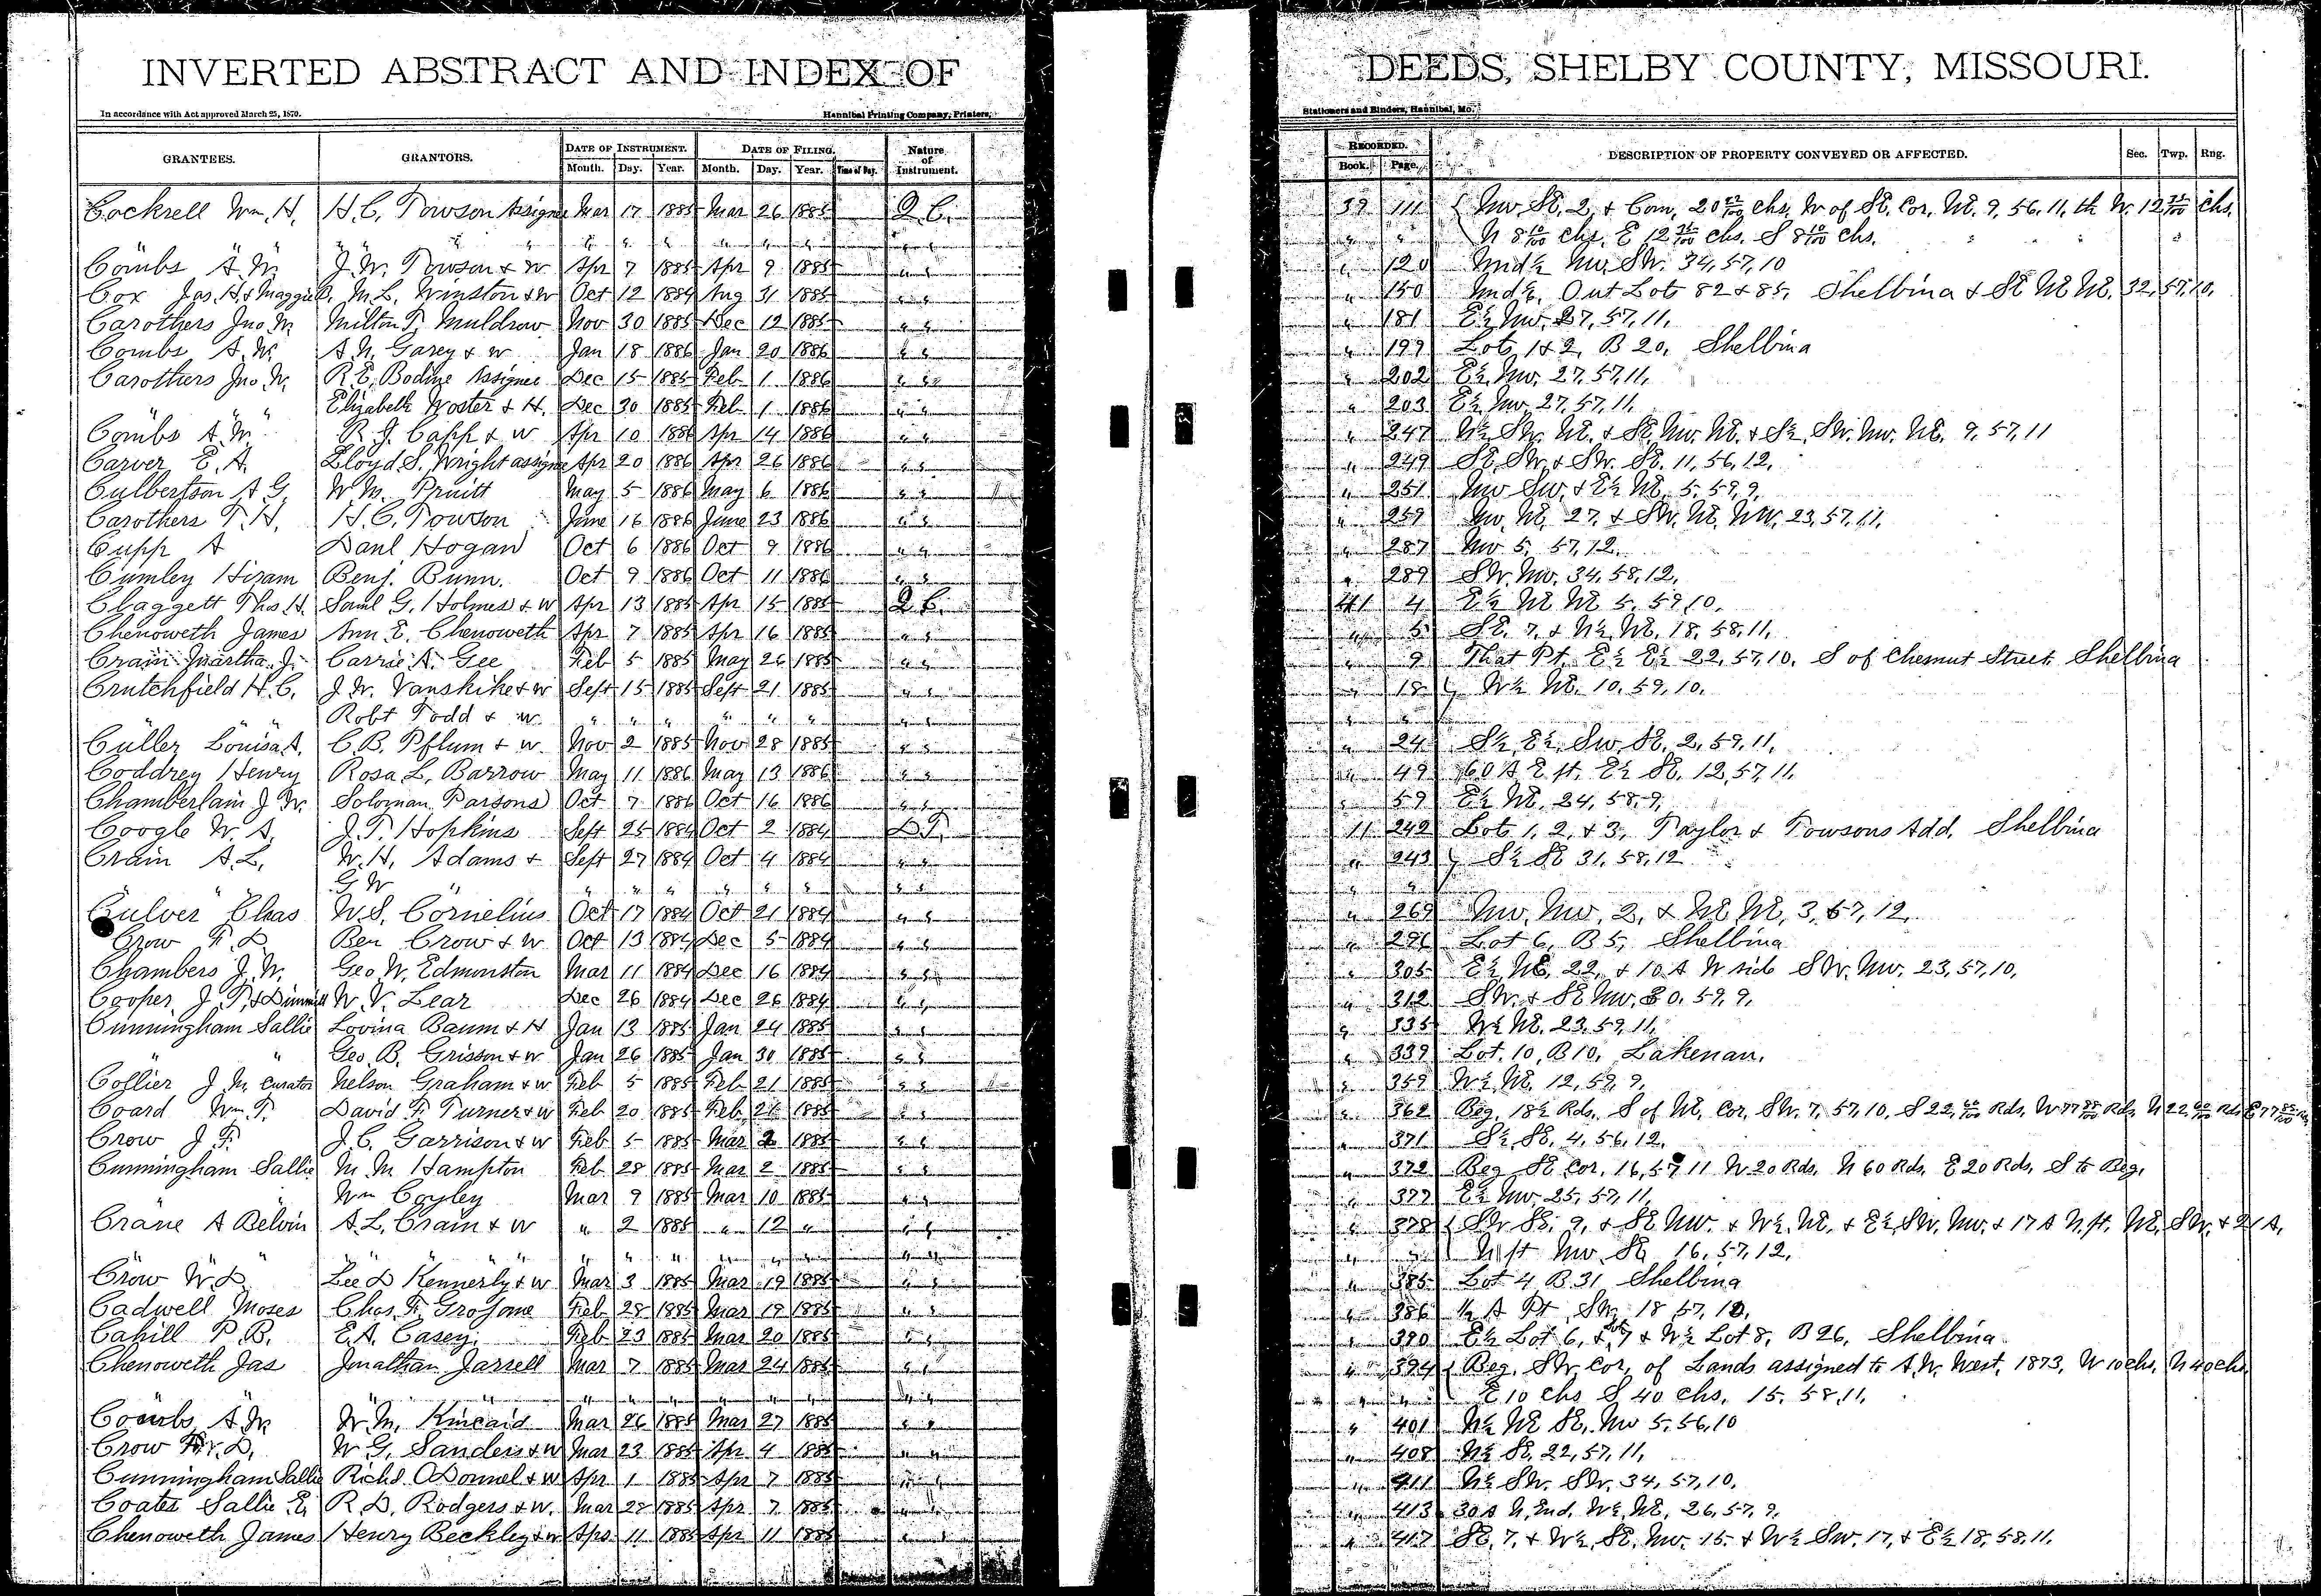 INVERTED ABSTRACT AND INDEX OF DEEDS, SHELBY COUNTY, MISSOURI.
In accordance with Act approved March 25, 1870. Hannibal Printing Company, Printers, Stationers and Binders, Hannibal, Mo.
GRANTEES. GRANTORS. DATE OF INSTRUMENT. DATE OF FILING. Nature of Instrument. RECORDED. DESCRIPTION OF PROPERTY CONVEYED OR AFFECTED. Sec. Twp. Rng.
Month. Day. Year. Month. Day. Year. Time of Day. Book. Page.
Cockrell Wm. H. H.C. Towson Assignee Mar 17 1885 Mar 26 1885 Q.C. 39 111 { Nw Se. 2, & Com, 20 22/100 chs. W of SE. Cor. NE. 9, 56, 11, th W. 12 35/100 chs.
" " " " " " " " " " " " " N 8 10/100 chs. E 12 35/100 chs. S 8 10/100 chs.
Combs A.W. J.W. Towson & W Apr 7 1885 Apr 9 1885 " " " 120 Und ½ Nw. SW. 34, 57, 10
Cox Jas. H & Maggie M.L. Winston & W Oct 12 1884 Aug 31 1885 " " " 150 Und ½, Out Lots 82 & 85, Shelbina & SE NE NE. 32, 57, 10,
Carothers Jno. M. Milton F. Muldrow Nov 30 1885 Dec 12 1885 " " " 181 E½ Nw. 27, 57, 11,
Combs A.W. A.N. Garey & W Jan 18 1886 Jan 20 1886 " " " 199 Lots 1 & 2, B 20, Shelbina
Carothers Jno. W. R.E. Bodine Assignee Dec 15 1885 Feb 1 1886 " " " 202 E½ Nw. 27, 57, 11,
" " Elizabeth Woster & H. Dec 30 1885 Feb 1 1886 " " " 203 E½ Nw 27, 57, 11,
Combs A.W. R.J. Capp & W Apr 10 1886 Apr 14 1886 " " " 247 N½ SW. NE. & SE. Nw. NE. & S½ SW. Nw. NE. 9, 57, 11
Carver E.A. Lloyd S. Wright assignee Apr 20 1886 Apr 26 1886 " " " 249 SE. SW. & SW. SE. 11, 56, 12,
Culbertson A.G. W.M. Pruitt May 5 1886 May 6 1886 " " " 251 Nw Sw. & E½ NE. 5, 59, 9,
Carothers T.H. H.C. Towson June 16 1886 June 23 1886 " " " 259 Nw. NE. 27, & SW. NE. NW. 23, 57, 11,
Cupp A Danl Hogan Oct 6 1886 Oct 9 1886 " " " 287 Nw 5, 57, 12,
Cumley Hiram Benj. Bunn. Oct 9 1886 Oct 11 1886 " " " 289 SW. Nw. 34, 58, 12,
Claggett Thos. H. Saml G. Holmes & W Apr 13 1885 Apr 15 1885 Q.C. 41 4 E½ NE NE 5, 59, 10,
Chenoweth James Ann E. Chenoweth Apr 7 1885 Apr 16 1885 " " " 5 SE. 7, & N½ NE. 18, 58, 11,
Crain Martha J. Carrie A. Gee Feb 5 1885 May 26 1885 " " " 9 That Pt. E½ E½ 22, 57, 10, S of Chesnut Street Shelbina
Crutchfield H.C. J.W. Vanskike & W Sept 15 1885 Sept 21 1885 " " " 18 } W½ NE. 10, 59, 10,
" " Robt Todd & W. " " " " " " " " " "
Culler Louisa A. C.B. Pflum & W. Nov 2 1885 Nov 28 1885 " " " 24 S½ E½ Sw. SE. 2, 59, 11,
Coddrey Henry Rosa L. Barrow May 11 1886 May 13 1886 " " " 49 60 A E pt. E½ SE. 12, 57, 11,
Chamberlain J.W. Soloman Parsons Oct 7 1886 Oct 16 1886 " " " 59 E½ NE. 24, 58, 9,
Coogle W.A. J.T. Hopkins Sept 25 1884 Oct 2 1884 D.T. 11 242 Lots 1, 2, & 3, Taylor & Towsons Add. Shelbina
Crain A.L. W.H. Adams & Sept 27 1884 Oct 4 1884 " " " 243 } S½ SE 31, 58, 12
" " G W " " " " " " " " " " "
Culver Chas W.S. Cornelius Oct 17 1884 Oct 21 1884 " " " 269 Nw. Nw. 2, & NE NE. 3, 57, 12,
Crow F.D. Ben Crow & W Oct 13 1884 Dec 5 1884 " " " 296 Lot 6, B 5, Shelbina
Chambers J.W. Geo W. Edmonston Mar 11 1884 Dec 16 1884 " " " 305 E½ NE. 22, & 10 A W side SW. Nw. 23, 57, 10,
Cooper J.P. & W.V. Lear Dec 26 1884 Dec 26 1884 " " " 312 SW. & SE Nw. 30, 59, 9,
Cunningham Sallie Lovina Baum & H Jan 13 1885 Jan 24 1885 " " " 335 W½ NE. 23, 59, 11,
" " Geo. B. Grisson & W Jan 26 1885 Jan 30 1885 " " " 339 Lot. 10, B 10, Lakenan.
Collier J.M. Curator Nelson Graham & W Feb 5 1885 Feb 21 1885 " " " 359 W½ NE. 12, 59, 9,
Coard Wm. T. David F. Turner & W Feb 20 1885 Feb 21 1885 " " " 362 Beg. 18½ Rds. S of NE. Cor. SW. 7, 57, 10, S 22 Rds. W 77 Rds. N 22 Rds E 77
Crow J.F. J.C. Garrison & W Feb 5 1885 Mar 2 1885 " " " 371 S½ SE. 4, 56, 12,
Cunningham Sallie M.M. Hampton Feb 28 1885 Mar 2 1885 " " " 372 Beg SE Cor. 16, 57 11 W 20 Rds. N 60 Rds. E 20 Rds. S to Beg.
" " Wm Coyley Mar 9 1885 Mar 10 1885 " " " 377 E½ Nw 25, 57, 11,
Crane A Belvin A.L. Crain & W " 2 1885 " 12 " " " " 378 { SW SE. 9, & SE NW. & W½ NE. & E½ SW. Nw. & 17 A N. pt. NE. SW. & 21 A.
" " " " " " " " " " " " " " N pt Nw SE 16, 57, 12,
Crow W.D. Lee D Kennerly & W Mar 3 1885 Mar 19 1885 " " " 385 Lot 4 B 31 Shelbina
Cadwell Moses Chas. F. Grosjome Feb 28 1885 Mar 19 1885 " " " 386 ½ A Pt SW. 18 57, 10,
Cahill P.B. E.A. Casey. Feb 23 1885 Mar 20 1885 " " " 390 E½ Lot 6, & 7 & W½ Lot 8, B 26, Shelbina
Chenoweth Jas Jonathan Jarrell Mar 7 1885 Mar 24 1885 " " " 394 { Beg. SW. Cor. of Lands assigned to A.W. West, 1873, W 10 chs. N 40 chs.
" " " " " " " " " " " " " E 10 chs S 40 chs. 15, 58, 11,
Combs A.W. W.M. Kincaid Mar 26 1885 Mar 27 1885 " " " 401 N½ NE SE. Nw 5, 56, 10
Crow W.D. W.G. Sanders & W Mar 23 1885 Apr 4 1885 " " " 408 N½ SE. 22, 57, 11,
Cunningham Sallie Richd. ODonnel & W Apr 1 1885 Apr 7 1885 " " " 411 N½ SW. SW. 34, 57, 10,
Coates Sallie E. R.D. Rodgers & W. Mar 28 1885 Apr 7 1885 " " " 413 30 A N. End. W½ NE. 26, 57, 9,
Chenoweth James Henry Beckley & W Apr 11 1885 Apr 11 1885 " " " 417 SE. 7, & W½ SE. Nw. 15, & W½ Sw. 17, & E½ 18, 58, 11,